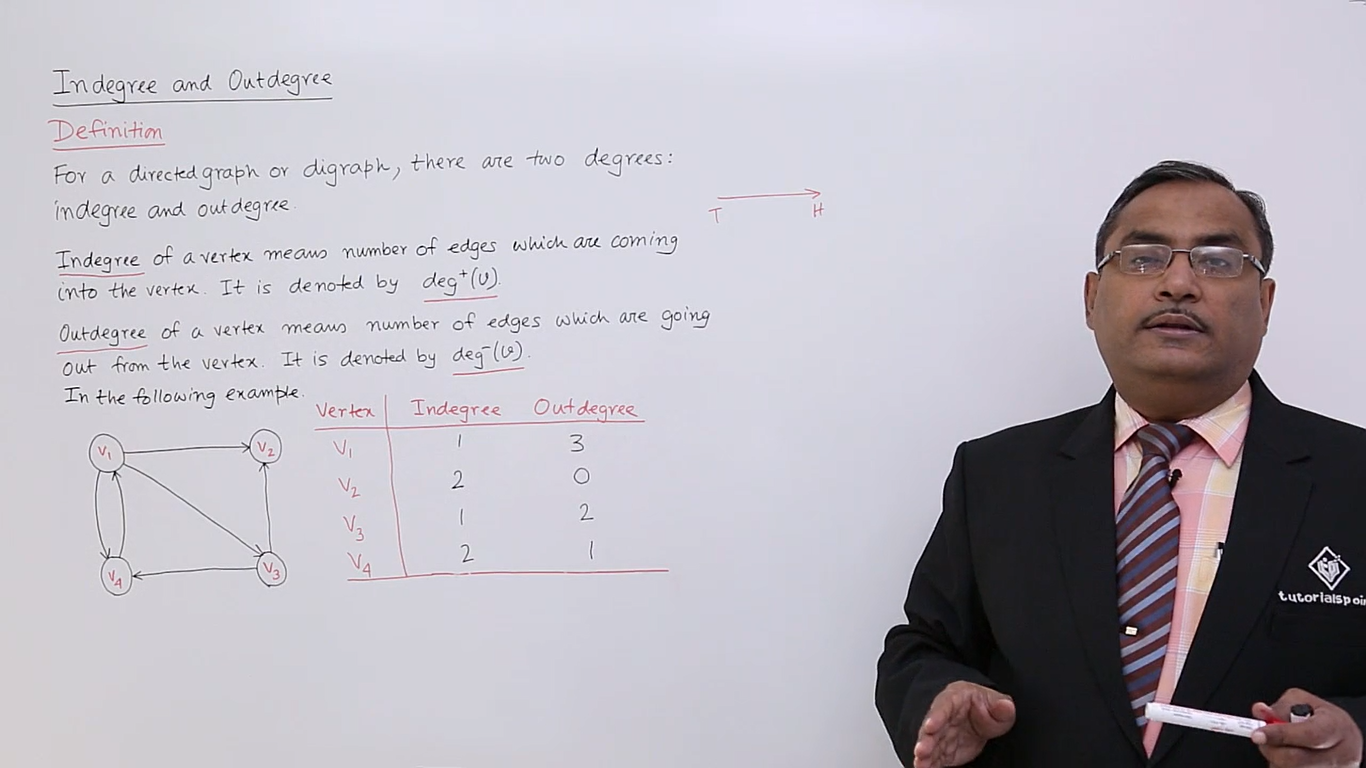 Indegree and Outdegree
Definition
For a directed graph or digraph, there are two degrees:
indegree and outdegree.
T H
Indegree of a vertex means number of edges which are coming
into the vertex. It is denoted by deg⁺(v).
Outdegree of a vertex means number of edges which are going
out from the vertex. It is denoted by deg⁻(v).
In the following example.
Vertex Indegree Outdegree
V₁ 1 3
V₂ 2 0
V₃ 1 2
V₄ 2 1
V₁ V₂
V₄ V₃
tutorialspoin